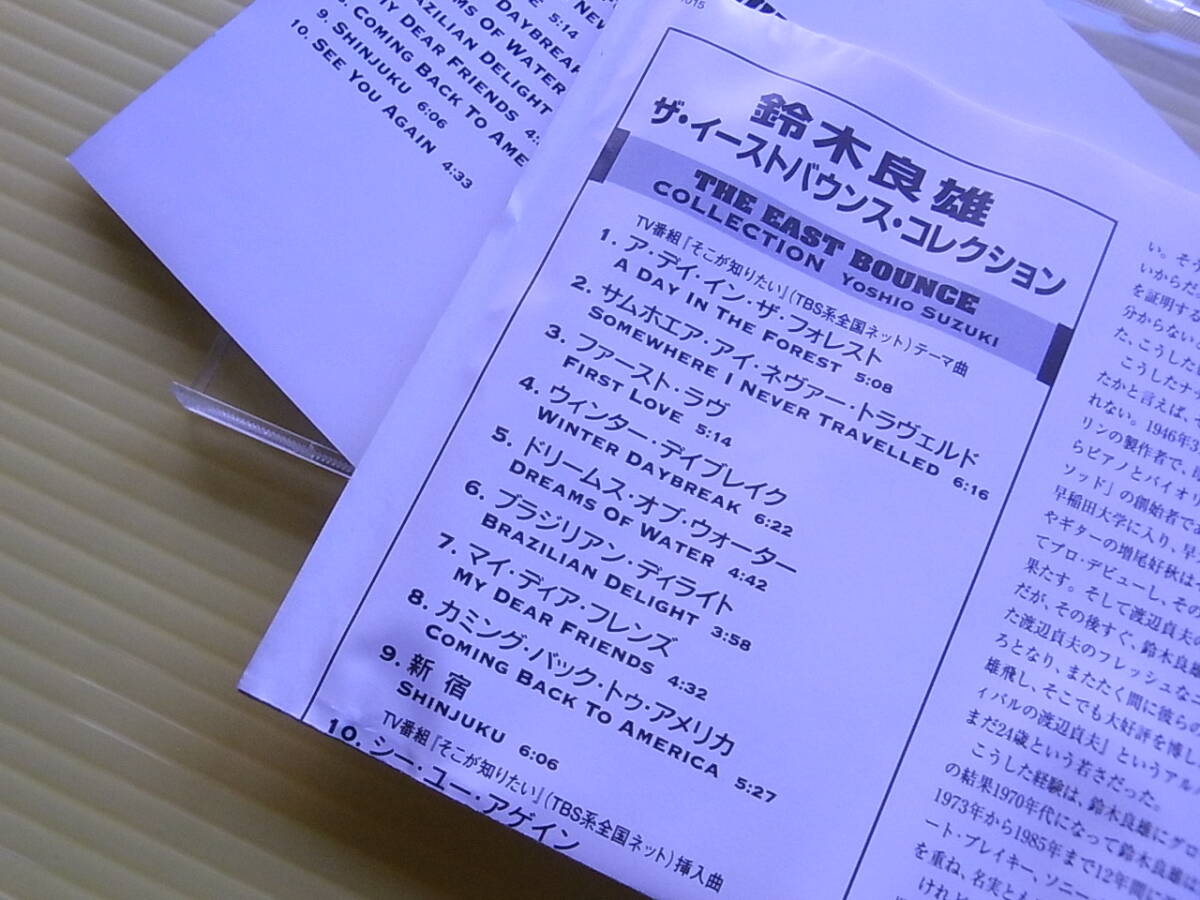 015
NEW
5:14
DAYBREAK
MS OF WATER
AZILIAN DELIGHT
MY DEAR FRIENDS 4:
8. COMING BACK TO AME
9. SHINJUKU 6:06
10. SEE YOU AGAIN 4:33
鈴木良雄
ザ・イーストバウンス・コレクション
THE EAST BOUNCE
COLLECTION YOSHIO SUZUKI
TV番組『そこが知りたい』(TBS系全国ネット)テーマ曲
1. ア・デイ・イン・ザ・フォレスト
A DAY IN THE FOREST 5:08
2. サムホエア・アイ・ネヴァー・トラヴェルド
SOMEWHERE I NEVER TRAVELLED 6:16
3. ファースト・ラヴ
FIRST LOVE 5:14
4. ウィンター・デイブレイク
WINTER DAYBREAK 6:22
5. ドリームス・オブ・ウォーター
DREAMS OF WATER 4:42
6. ブラジリアン・ディライト
BRAZILIAN DELIGHT 3:58
7. マイ・ディア・フレンズ
MY DEAR FRIENDS 4:32
8. カミング・バック・トゥ・アメリカ
COMING BACK TO AMERICA 5:27
9. 新宿
SHINJUKU 6:06
TV番組『そこが知りたい』(TBS系全国ネット)挿入曲
10. シー・ユー・アゲイン
い。そう
いからだ
を証明する
分からない
た、こうした
こうしたナ
たかと言えば、
れない。1946年3
リンの製作者で、
らピアノとバイオリ
ソッド」の創始者であ
早稲田大学に入り、早
やギターの増尾好秋は
てプロ・デビューし、その
果たす。そして渡辺貞夫
だが、その後すぐ、鈴木良雄
た渡辺貞夫のフレッシュな
ろとなり、またたく間に彼らの
雄飛し、そこでも大好評を博し
イバルの渡辺貞夫』というアル
まだ24歳という若さだった。
こうした経験は、鈴木良雄にグロ
の結果1970年代になって鈴木良雄は
1973年から1985年まで12年間に
ート・ブレイキー、ソニー
を重ね、名実とも
けれど